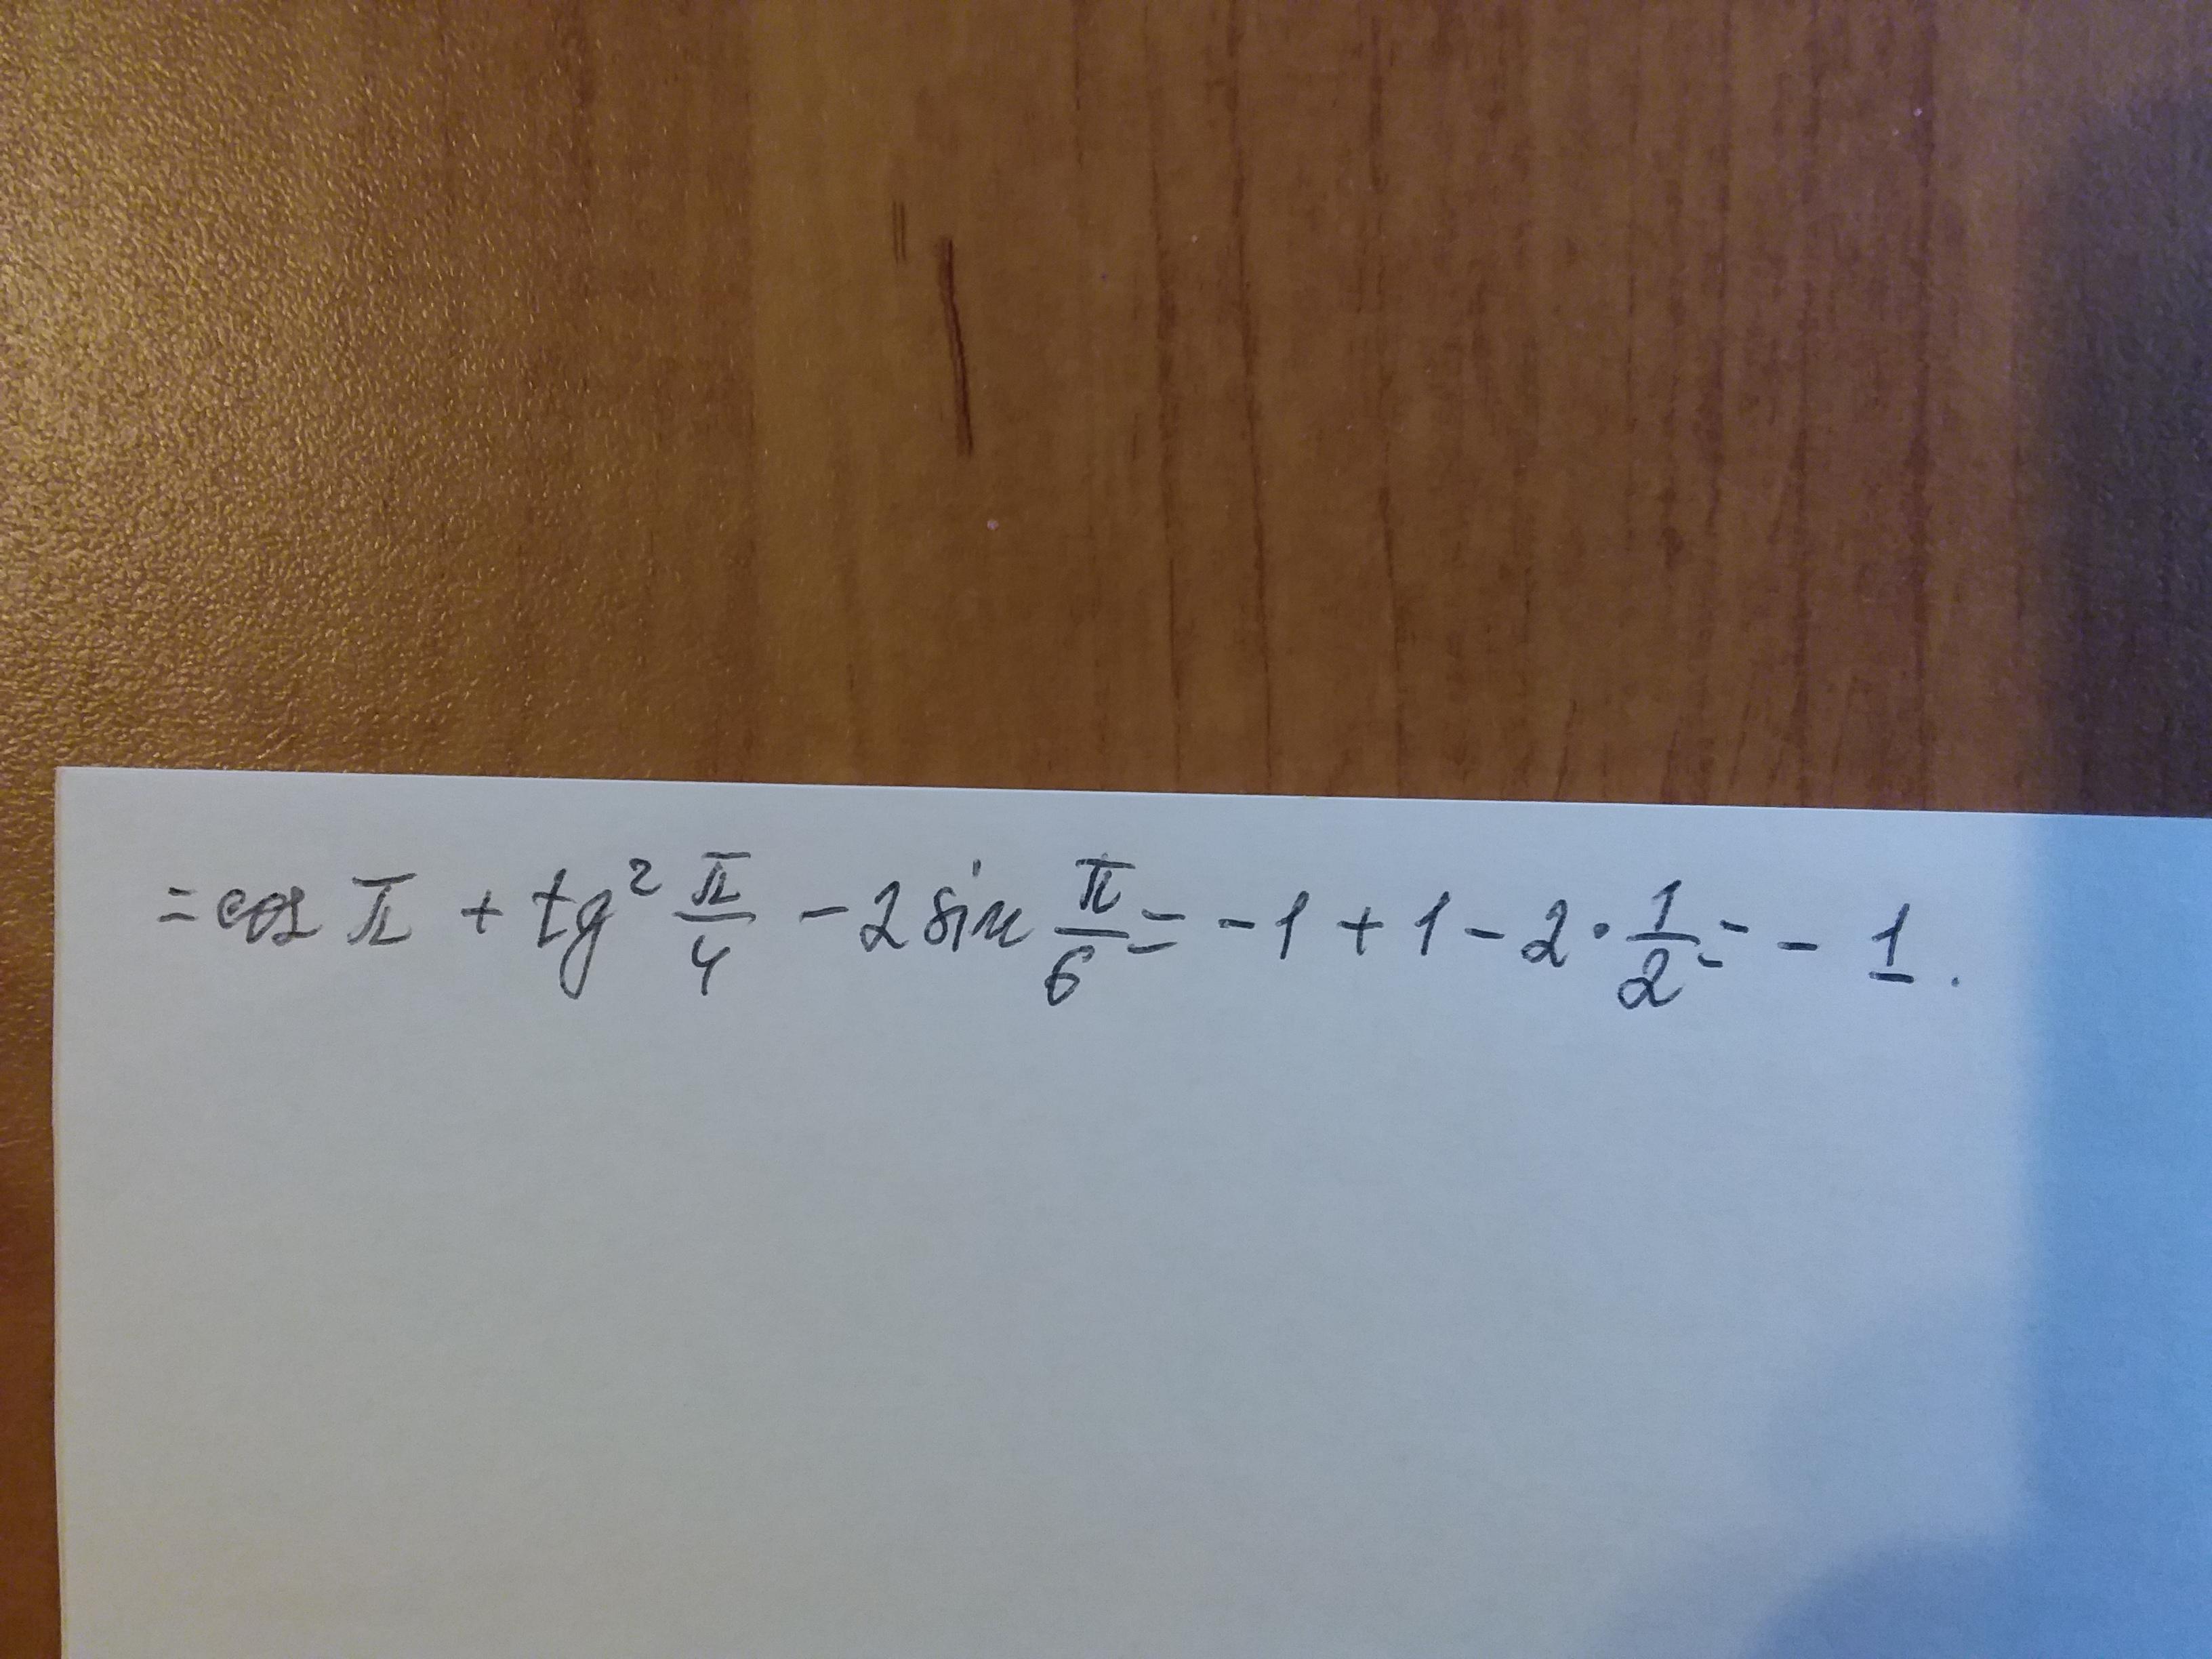 = cos π + tg² π/4 - 2 sin π/6 = -1 + 1 - 2 · 1/2 = - 1.